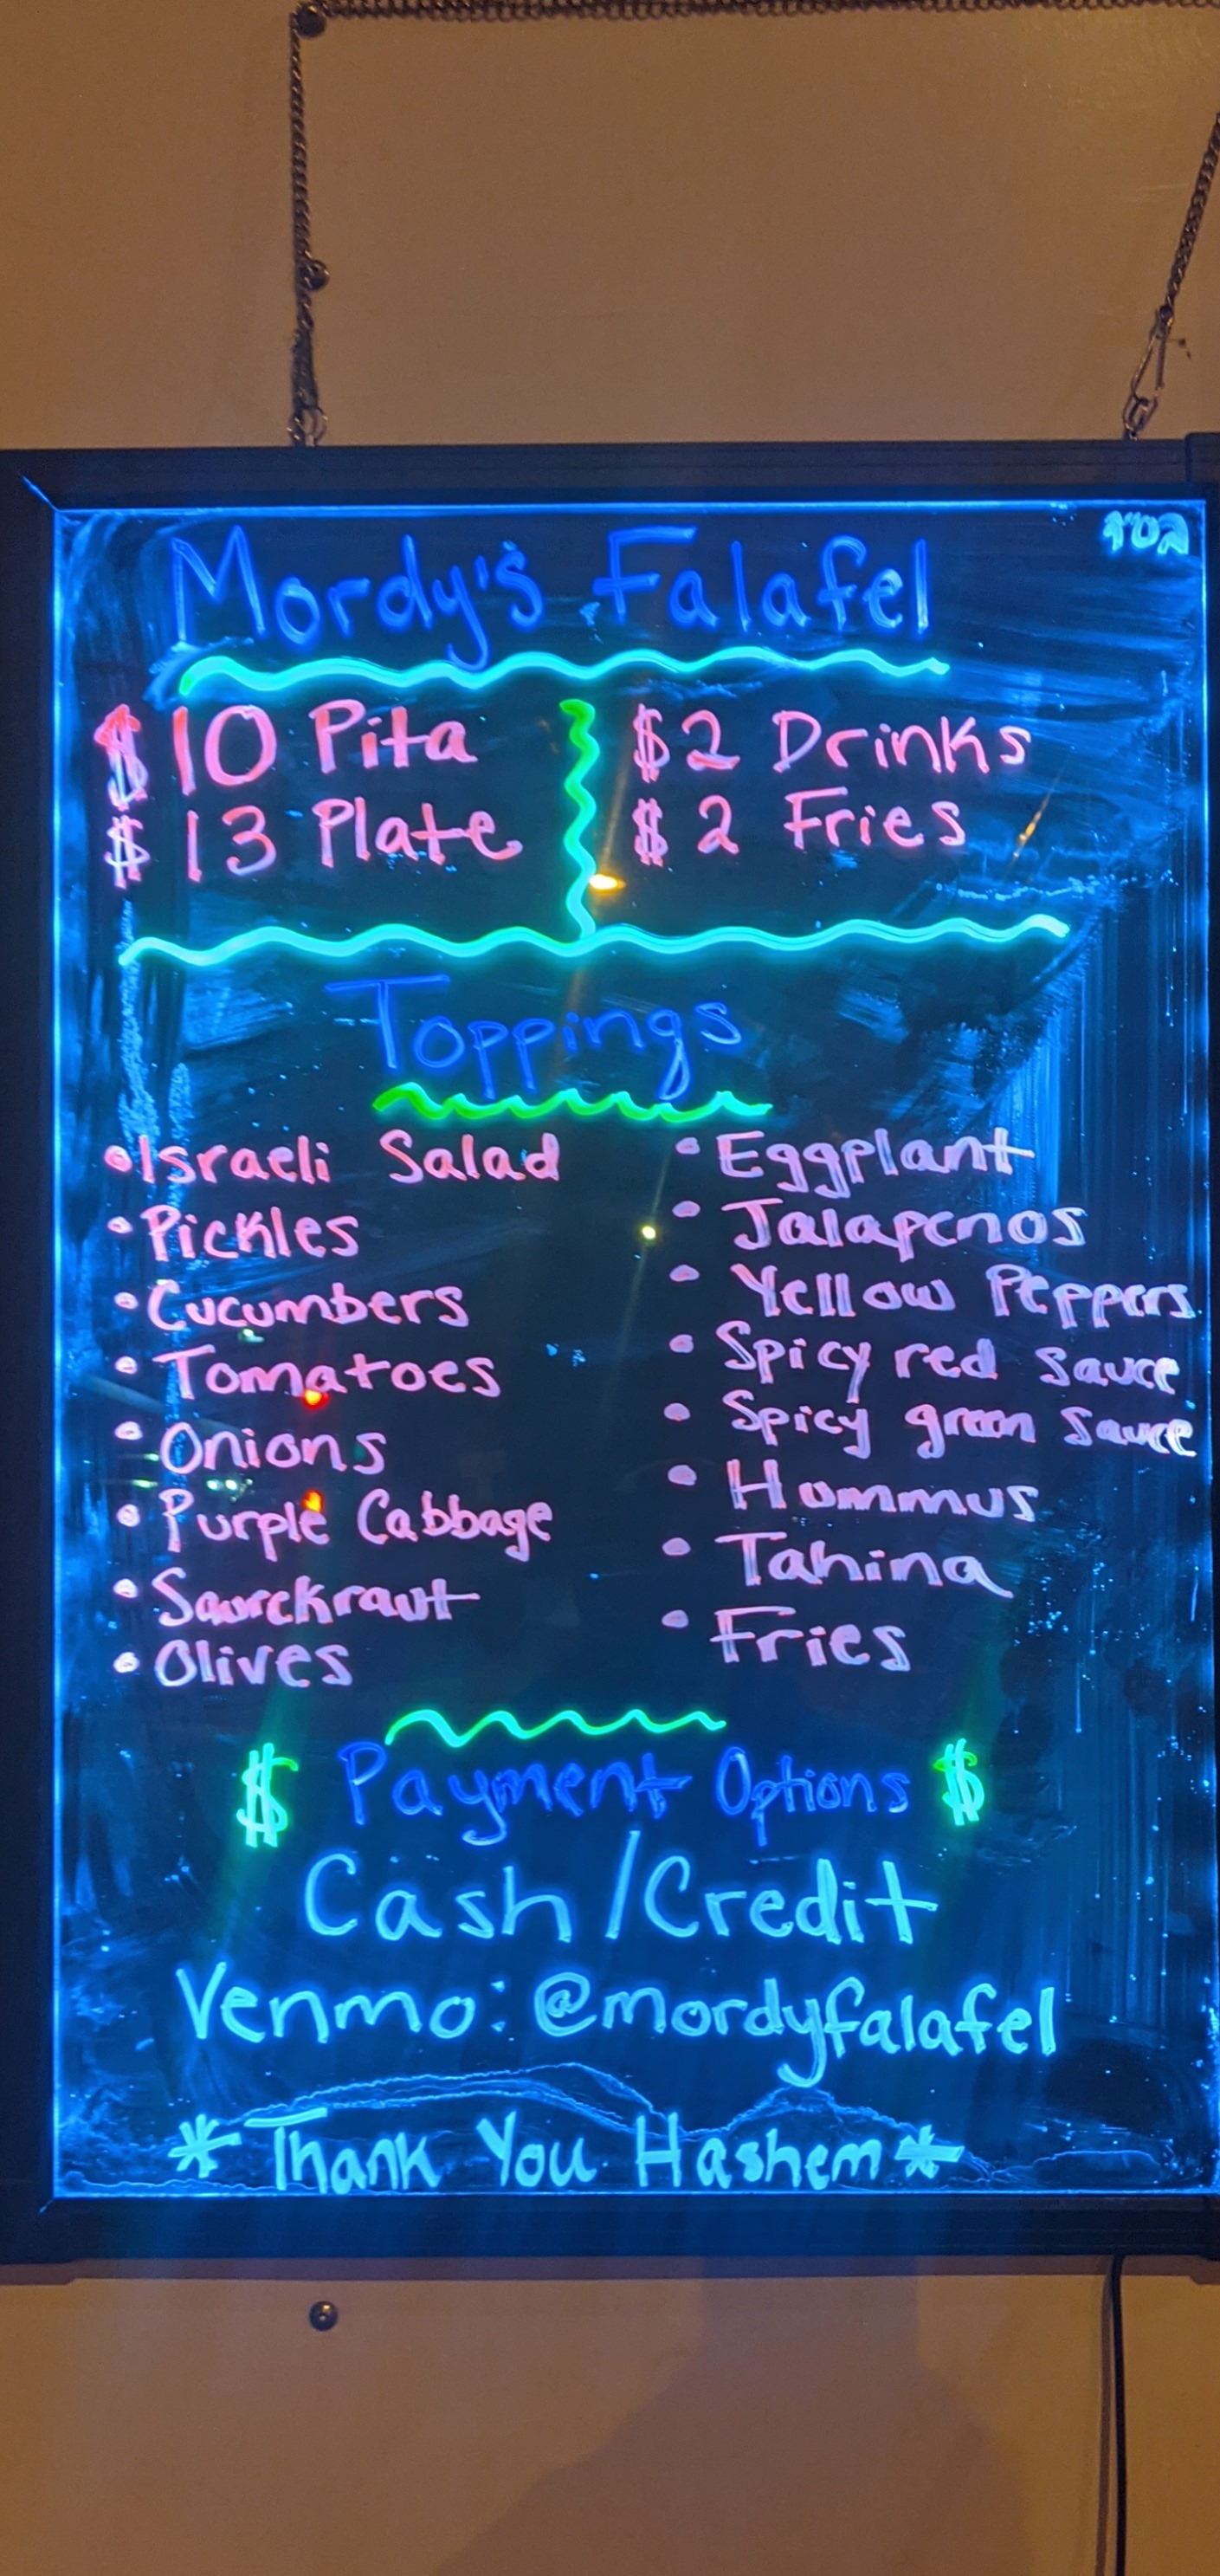 בס"ד
Mordy's Falafel
$10 Pita
$13 Plate
$2 Drinks
$2 Fries
Toppings
•Israeli Salad
•Pickles
•Cucumbers
•Tomatoes
•Onions
•Purple Cabbage
•Saurekraut
•Olives
•Eggplant
•Jalapenos
•Yellow Peppers
•Spicy red sauce
•Spicy green sauce
•Hummus
•Tahina
•Fries
$ Payment Options $
Cash/Credit
Venmo: @mordyfalafel
*Thank You Hashem*